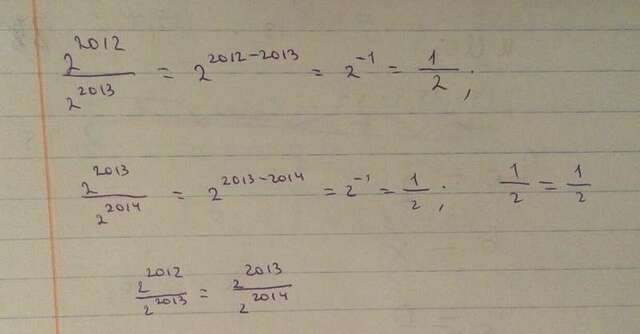 2^2012 / 2^2013 = 2^2012-2013 = 2^-1 = 1/2;
2^2013 / 2^2014 = 2^2013-2014 = 2^-1 = 1/2; 1/2 = 1/2
2^2012 / 2^2013 = 2^2013 / 2^2014